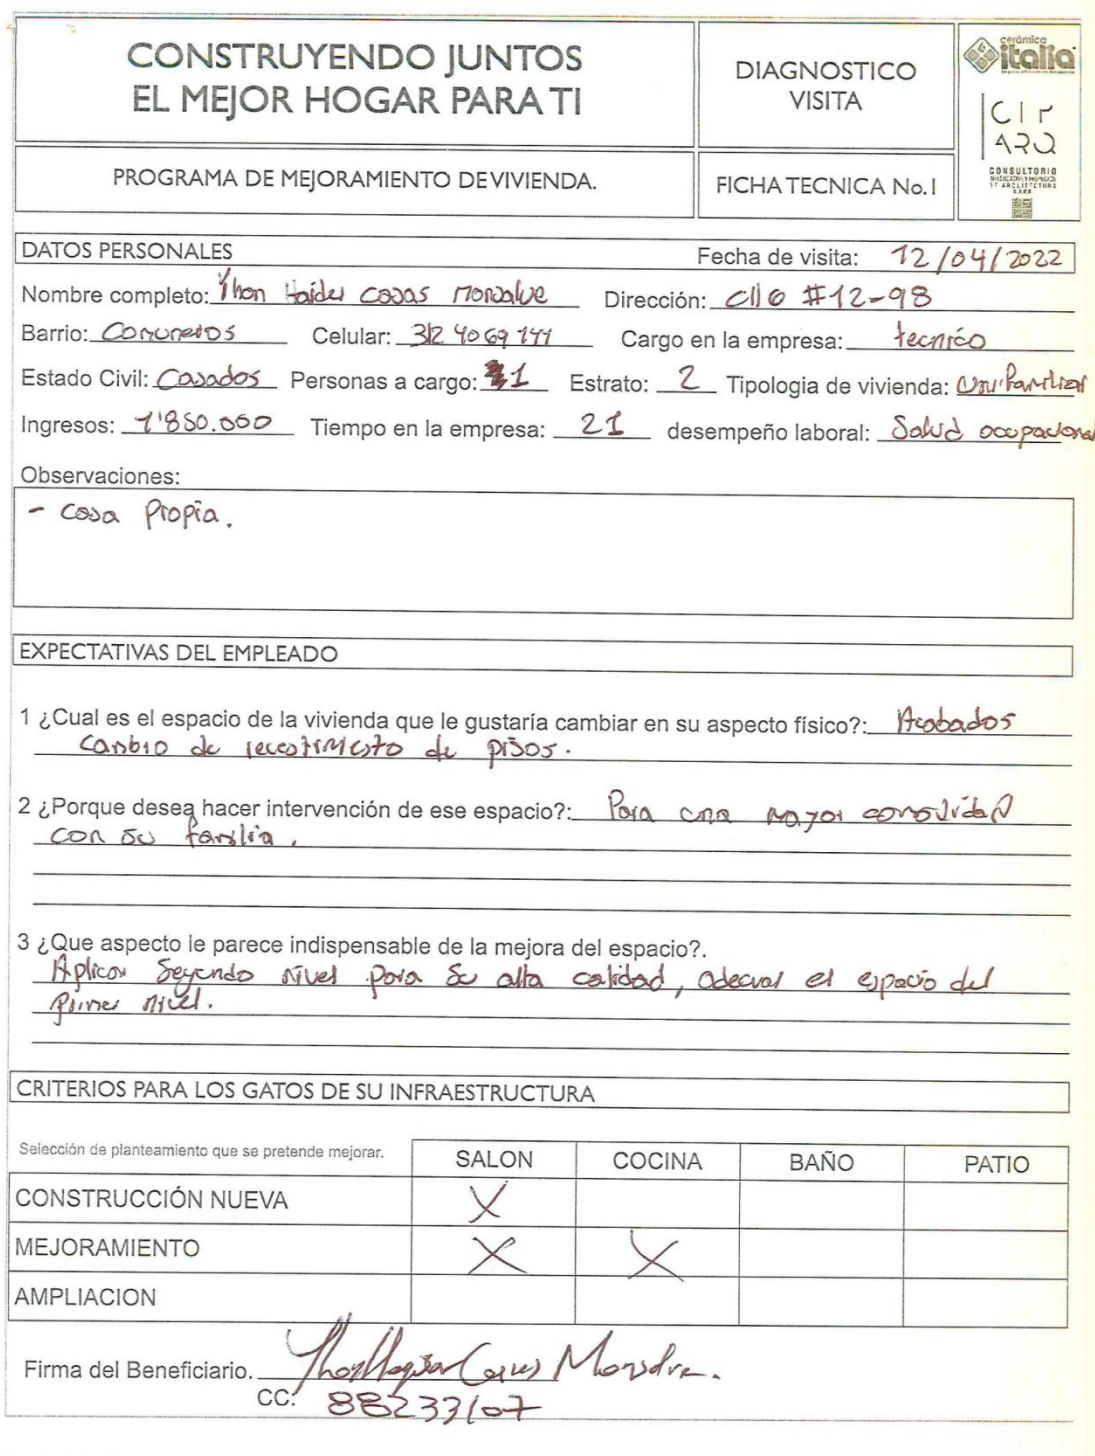 CONSTRUYENDO JUNTOS
EL MEJOR HOGAR PARA TI
DIAGNOSTICO
VISITA
cerámica
italia
CIP
ARQ
CONSULTORIO
PROGRAMA DE MEJORAMIENTO DE VIVIENDA.
FICHA TECNICA No.1
DATOS PERSONALES Fecha de visita: 12/04/2022
Nombre completo: Yhon Haider Casas Monsalve Dirección: Cll 6 #12-98
Barrio: Comuneros Celular: 312 4069 111 Cargo en la empresa: tecnico
Estado Civil: Casados Personas a cargo: 1 Estrato: 2 Tipologia de vivienda: Unifamiliar
Ingresos: 1'850.000 Tiempo en la empresa: 21 desempeño laboral: Salud ocupacional
Observaciones:
- Casa Propia.
EXPECTATIVAS DEL EMPLEADO
1 ¿Cual es el espacio de la vivienda que le gustaría cambiar en su aspecto físico?: Acabados
Cambio de recestimiesto de pisos.
2 ¿Porque desea hacer intervención de ese espacio?: Para una mayor
con su familia.
3 ¿Que aspecto le parece indispensable de la mejora del espacio?.
Aplicar Segundo nivel para su alta calidad, adecuar el espacio del
Primer nivel.
CRITERIOS PARA LOS GATOS DE SU INFRAESTRUCTURA
Selección de planteamiento que se pretende mejorar. SALON COCINA BAÑO PATIO
CONSTRUCCIÓN NUEVA X
MEJORAMIENTO X X
AMPLIACION
Firma del Beneficiario. Monsalve.
CC: 88233107